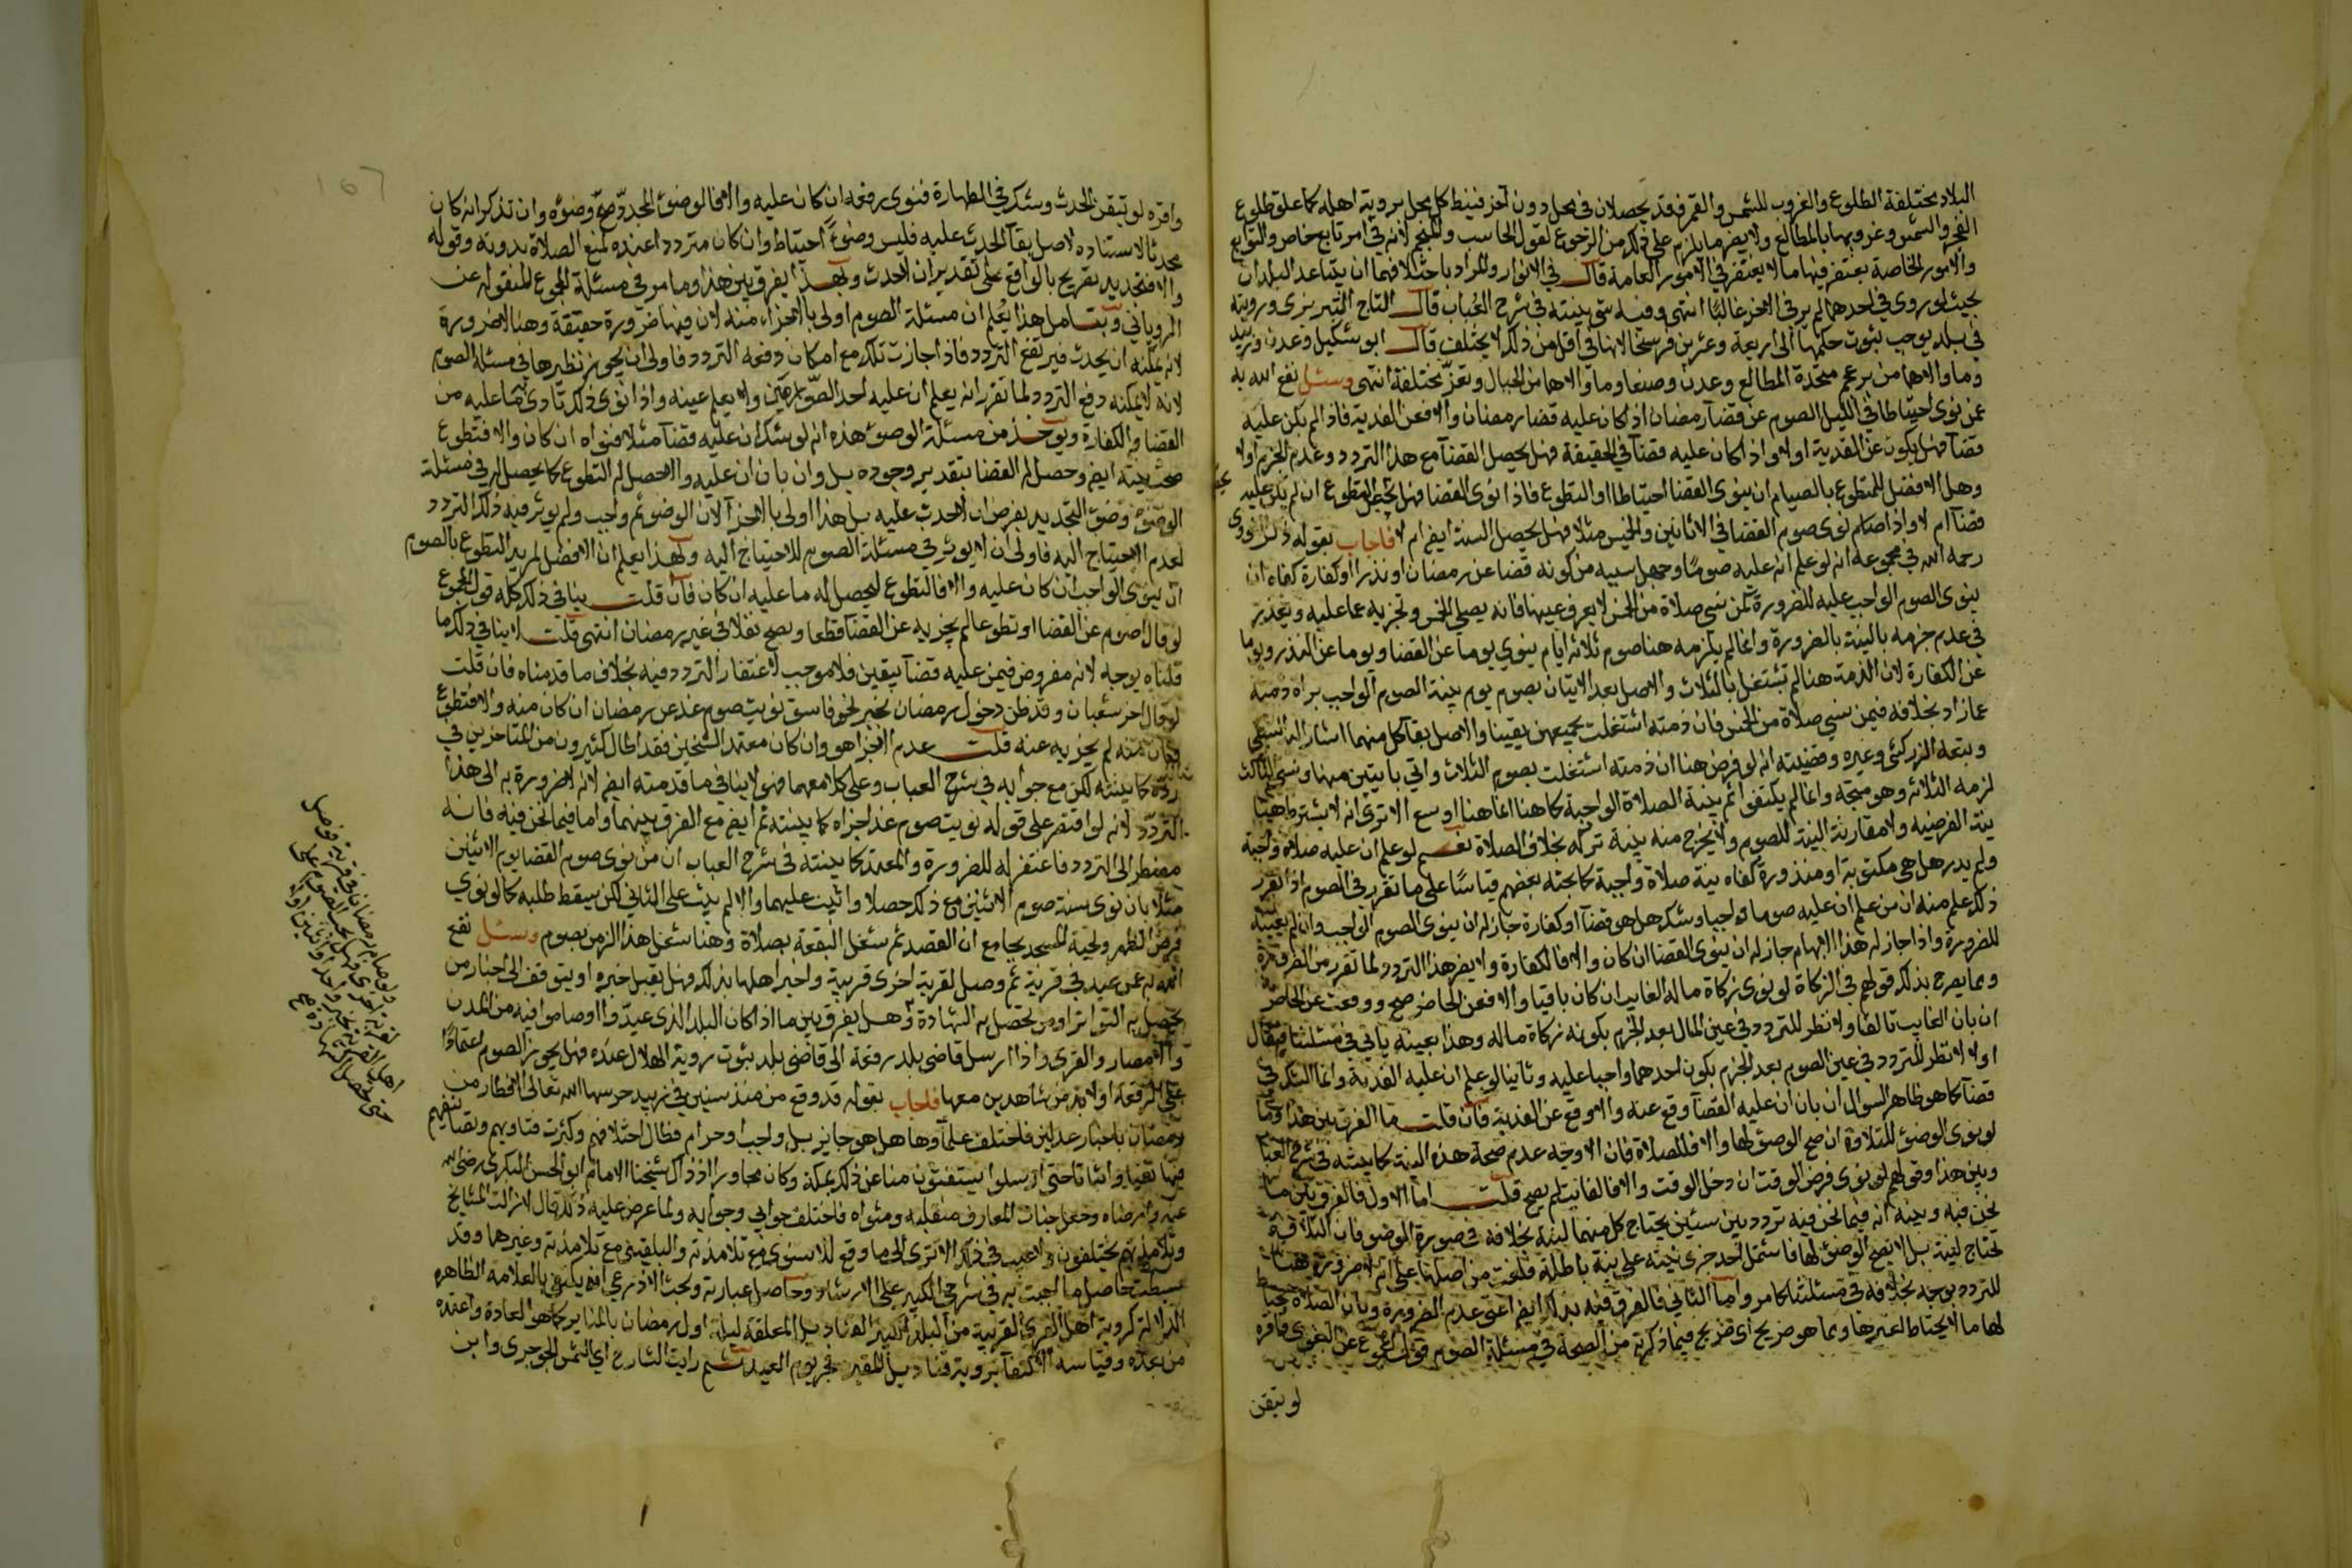 البلاد مختلفة الطلوع والغروب للشمس والقمر فقد يحصلان في محل دون آخر فنيط كل محل بروية اهله كما علق طلوع
الفجر والشمس وغروبها بالمطالع ولا يضر ما يلزم على ذلك من الرجوع لقول الحاسب والمنجم لانه في امر تابع خاص والتوابع
والامور الخاصة يغتفر فيها ما لا يغتفر في الامور العامة قال في الانوار والمراد باختلافهما ان يتباعد البلدان
بحيث لو روي في احدهما لم ير في الاخر غالبًا انتهى وفيه شي بينته في شرح العباب قال التاج التبريزى ورويته
في بلد يوجب ثبوت حكمها الى اربعة وعشرين فرسخا لانها في اقل من ذلك لا يختلف قال ابو شكيل وعدن وزبيد
وما والاها من برعجم متحدة المطالع وعدن وصنعا وما والاها من الجبال وتعز مختلفة انتهى وسئل نفع الله به
عمن نوى احتياطا في الليل الصوم عن قضا رمضان اذا كان عليه قضا رمضان والا فعن الفدية فاذا لم يكن عليه
قضا فهل يكون عن الفدية اولا واذا كان عليه قضا في الحقيقة فهل يحصل القضا مع هذا التردد وعدم الجزم اولا
وهل الافضل للمتطوع بالصيام ان ينوى القضا احتياطا او التطوع فاذا نوى القضا فهل يحصل التطوع ان لم يكن عليه
قضا ام لا واذا صام نوى صوم القضا في الاثنين والخميس مثلا فهل يحصل السنة ايضا ام لا فاجاب بقوله ذكر النووى
رحمه الله في مجموعه انه لو علم ان عليه صومًا وجهل سببه من كونه قضا عن رمضان او نذرا او كفارة كفاه ان
ينوى الصوم الواجب عليه للضرورة كمن نسي صلاة من الخمس لا يعرف عينها فانه يصلي الخمس وتجزيه عما عليه ويعذر
في عدم جزمه بالنية بالضرورة وانما لم يلزمه هنا صوم ثلاثة ايام ينوي يوما عن القضا ويوما عن النذر ويوما
عن الكفارة لان الذمة هنا لم تشتغل بالثلاث والاصل بعد الاتيان بصوم يوم بنية الصوم الواجب براة ذمته
عما زاد بخلافه فيمن نسي صلاة من الخمس فان ذمته اشتغلت بجميعهن يقينا والاصل بقا كل منهما اشار اليه السبكي
وتبعه الزركشي وغيره وقضيته انه لو فرض هنا ان ذمته اشتغلت بصوم الثلاث واتي باثنين منها ونسي الثالث
لزمه الثلاثة وهو متجه وانما لم يكتفوا ثم بنية الصلاة الواجبة كما هنا لانها هنا اوسع الا ترى انه لا يشترط هنا
نية الفرضية ولا مقارنة النية للصوم ولا يخرج منه بنية تركه بخلاف الصلاة نعم لو علم ان عليه صلاة واجبة
ولم يدر هل هي مكتوبة او منذورة كفاه نية صلاة واجبة كما بحثه بعضهم قياسًا على ما تقرر في الصوم اذا تقرر
ذلك علم منه ان من علم ان عليه صوما واجبا وشك هل هو قضا او كفارة جاز له ان ينوى الصوم الواجب وان لم يعينه
للضرورة واذا جاز له هذا الابهام جاز له ان ينوى القضا ان كان والا فالكفارة ولا يضر هذا التردد لما تقرر من الضرورة
ومما يصرح بذلك قولهم في الزكاة لو نوى زكاة ماله الغايب ان كان باقيا والا فعن الحاضر صح ووقعت عن الحاضر
ان بان الغايب تالفا ولا نظر للتردد في عين المال بعد الجزم بكونه زكاة ماله وهذا بعينه ياتي في مسئلتنا فيقال
اولا لا نظر للتردد في عين الصوم بعد الجزم بكون احدهما واجبا عليه وثانيا لو علم ان عليه الفدية وانما الشك في
قضا كما هو ظاهر السوال ان بان ان عليه القضا وقع عنه والا وقع عن الفدية فان قلت ما الفرق بين هذا وما
لو نوى الوضو للتلاوة ان صح الوضو لها والا فللصلاة فان الاوجه عدم صحة هذه النية كما بينته في شرح العباب
وبين هذا وقولهم لو نوى فرض الوقت ان دخل الوقت والا فالفايت لم يصح قلت اما الاول فالفرق بين ما
نحن فيه وبينه انه فيما نحن فيه تردد بين سيئين يحتاج كل منهما لنية بخلافه في صورة الوضو فان التلاوة لا
تحتاج لنية بل لا يصح الوضو لها فاشتمل احد جزى نيته على نية باطلة فلغت من اصلها على انه لا ضرورة هنا
للتردد بوجه بخلافه في مسئلتنا كما مر واما الثاني فالفرق فيه بذلك ايضا اعني عدم الضرورة وبان الصلاة يحتاط
لها ما لا يحتاط لغيرها ومما هو صريح اي صريح فيما ذكرته من الصحة في مسئلة الصوم قول المجموع عن البغوى واقره
لو تيقن
واقره لو تيقن الحدث وشك في الطهارة فنوى رفعه ان كان عليه والا فالوضو المجدد صح وضوه وان تذكر انه كان
محدثا لاستناده لاصل بقا الحدث عليه فليس وضوءً احتياط وان كان مترددا عنده لمنع الصلاة بدونه وقوله
والا فتجديد تصريح بالواقع على تقدير ان لا حدث وبهذا يفرق بين هذا وما مر في مسئلة المجموع المنقولة عن
الروياني وبتامل هذا يعلم ان مسئلة الصوم اولى بالاجزاء منه لان فيها ضرورة حقيقة وهنا لا ضرورة
لانه يمكنه ان يحدث فيرتفع التردد فاذا جازت تلك مع امكان دفعه التردد فاولى ان يجوز نظيرها في مسئلة الصوم
لانه لا يمكنه دفع التردد لما تقرر انه يعلم ان عليه احد الصومين ولا يعلم عينه واذا نوى ذلك تادى ما عليه من
القضا والكفارة ويوخذ من مسئلة الوضو هذه انه لو شك ان عليه قضا مثلا فنواه ان كان والا فتطوع
صحت نيته ايضا وحصل له القضا بتقدير وجوده بل وان بان ان عليه والا حصل له التطوع كما يحصل له في مسئلة
الوضو وضو التجديد بفرض ان لا حدث عليه بل هذا اولى بالاجزا لان الوضو ثم واجب ولم يوثر فيه ذلك التردد
لعدم الاحتياج اليه فاولى ان لا يوثر في مسئلة الصوم للاحتياج اليه وبهذا يعلم ان الافضل لمريد التطوع بالصوم
ان ينوى الواجب ان كان عليه والا فالتطوع ليحصل له ما عليه ان كان فان قلت ينافي ذلك كله قول المجموع
لو قال اصوم عن القضا او تطوعا لم يجزيه عن القضا قطعا ويصح نفلا في غير رمضان انتهى قلت لا ينافي ذلك ما
قلناه بوجه لانه مفروض فيمن عليه قضا بيقين فلا موجب لاغتفار التردد فيه بخلاف ما قدمناه فان قلت
لو قال اخر شعبان وقد ظن دخول رمضان بخبر نحو فاسق نويت صوم غد عن رمضان ان كان منه والا فتطوع
فبان منه لم يجزيه عنه قلت عدم الاجزا هو وان كان معتمد الشيخين فقد اطال كثيرون من المتاخرين في
رده كما بينته لكن مع جوابه في شرح العباب وعلى كلامهما فهو لا ينافي ما قدمته ايضا لانه لا ضرورة به الى هذا
التردد لانه لو اقتصر على قوله نويت صوم غد اجزاه كما بينته ثم ايضا مع الفرق بينهما واما فيما نحن فيه فانه
مضطر الى التردد فاغتفر له للضرورة والمعتمد كما بينته في شرح العباب ان من نوى صوم القضا يوم الاثنين
مثلا بان نوى سنة صوم الاثنين مع ذلك حصلا واثيب عليهما والا لم يثب على الثاني لكن سقط طلبه كما لو نوي
فرض الظهر وتحية المسجد بجامع ان القصد ثم شغل البقعة بصلاة وهنا شغل هذا الزمن بصوم وسئل نفع
الله به عمن عيد في قرية ثم وصل لقرية اخرى قريبة واخبر اهلها بذلك فهل يقبل خبره او يتوقف الى اخبار من
يحصل به التواتر او من تحصل به الشهادة وهل يفرق بين ما اذا كان البلد الذى عيدوا او صاموا فيه من المدن
والامصار والقرى واذا ارسل قاضى بلد رقعة الى قاضى بلد بثبوت روية الهلال عنده فهل يجوز الصوم اعتمادًا
على الرقعة اولا بد من شاهدين معها فاجاب بقوله قد وقع من منذ سنين في زبيد حرسها الله تعالى الافطار من
رمضان باخبار عدلين فاختلف علماؤها هل هو جايز بل واجب او حرام فطال اختلافهم وكثرت فتاويهم وتصانيفهم
فيها نفيا واثباتا حتى ارسلوا يستفتون منا عن ذلك بمكة وكان مجاورا اذ ذاك شيخنا الامام ابو الحسن البكرى رضى الله
عنه وارضاه وجعل جنات المعارف متقلبه ومثواه فاختلف جوابي وجوابه ولما عرض عليه ذلك قال لا زالت المشايخ
وتلامذتهم يختلفون ولا عيب في ذلك الا ترى الى ما وقع للاسنوى مع تلامذته والبلقيني مع تلامذته وغيرهما وقد
بسطت حاصل ما اجبت به في شرحي الكبير على الارشاد وحاصل عبارته وبحث الاذرعي انه يكتفى بالعلامة الظاهرة
الدالة كروية اهل القرى القريبة من البلد الكبير القناديل المعلقة ليلة اول رمضان بالمناير كما هو العادة واعتمده
من بعده وقياسه الاكتفا بروية قناديل فجر يوم العيد ثم رايت الشارح اي الشمس الجوجرى وابن